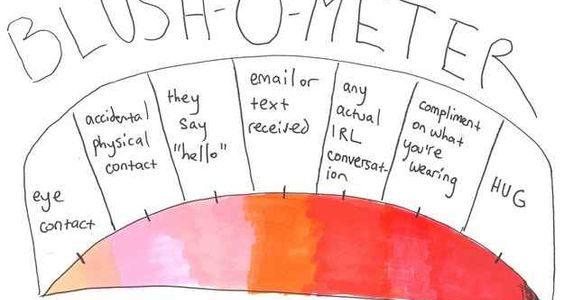 BLUSH-O-METER
eye
contact
accidental
physical
contact
they
say
"hello"
email or
text
received
any
actual
IRL
conversat-
ion
compliment
on what
you're
wearing
HUG